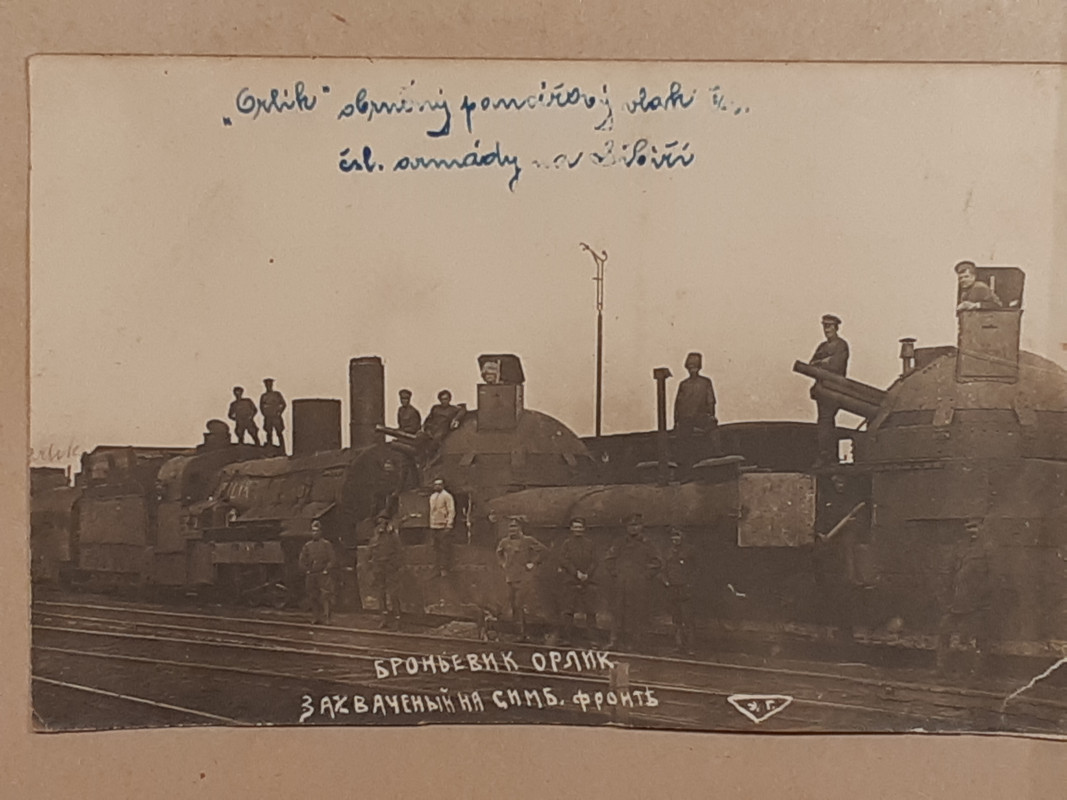 „Orlik" obrněný pancéřový vlak
čsl. armády na Sibiři
БРОНЬЕВИК ОРЛИК
ЗАХВАЧЕНЫЙ НА СИМБ. ФРОНТѢ
Э. Г.